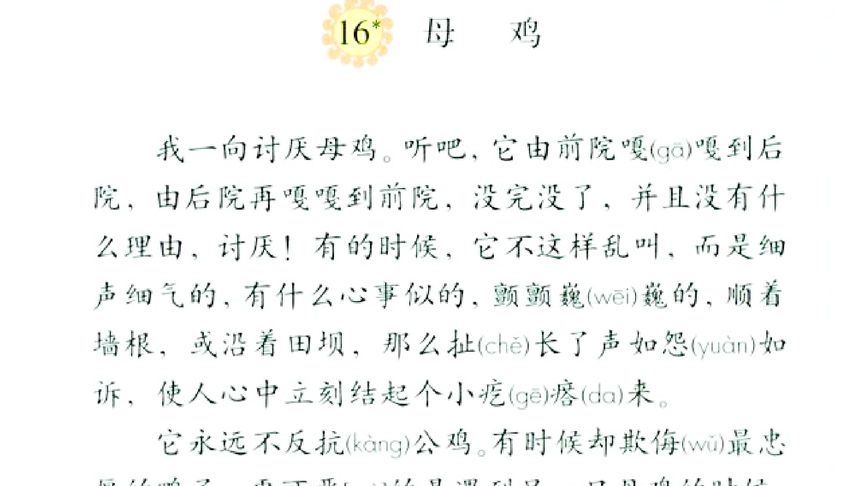 16* 母 鸡
我一向讨厌母鸡。听吧，它由前院嘎(gā)嘎到后
院，由后院再嘎嘎到前院，没完没了，并且没有什
么理由，讨厌！有的时候，它不这样乱叫，而是细
声细气的，有什么心事似的，颤颤巍(wēi)巍的，顺着
墙根，或沿着田坝，那么扯(chě)长了声如怨(yuàn)如
诉，使人心中立刻结起个小疙(gē)瘩(da)来。
它永远不反抗(kàng)公鸡。有时候却欺侮(wǔ)最忠